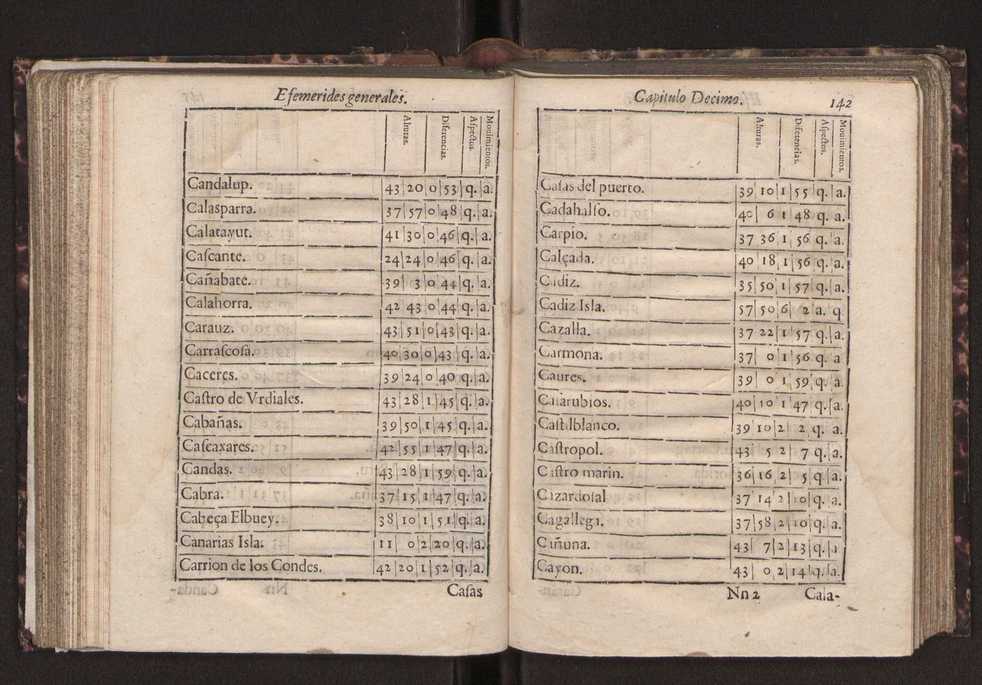 Efemerides generales.
Alturas. Diferencias. Aſpectos. Mouimientos.
Candalup. 43 20 0 53 q. a.
Calasparra. 37 57 0 48 q. a.
Calatayut. 41 30 0 46 q. a.
Caſcante. 24 24 0 46 q. a.
Cañabate. 39 3 0 44 q. a.
Calahorra. 42 43 0 44 q. a.
Carauz. 43 51 0 43 q. a.
Carraſcoſa. 40 30 0 43 q. a.
Caceres. 39 24 0 40 q. a.
Caſtro de Vrdiales. 43 28 1 45 q. a.
Cabañas. 39 50 1 45 q. a.
Caſcaxares. 42 55 1 47 q. a.
Candas. 43 28 1 59 q. a.
Cabra. 37 15 1 47 q. a.
Cabeça Elbuey. 38 10 1 51 q. a.
Canarias Isla. 11 0 2 20 q. a.
Carrion de los Condes. 42 20 1 52 q. a.
Caſas
Capitulo Decimo. 142
Alturas. Diferencias. Aſpectos. Mouimientos.
Caſas del puerto. 39 10 1 55 q. a.
Cadahalſo. 40 6 1 48 q. a.
Carpio. 37 36 1 56 q. a.
Calçada. 40 18 1 56 q. a.
Cadiz. 35 50 1 57 q. a.
Cadiz Isla. 57 50 6 2 a. q
Cazalla. 37 22 1 57 q. a.
Carmona. 37 0 1 56 q. a
Caures. 39 0 1 59 q. a.
Cauarubios. 40 10 1 47 q. a.
Caſtilblanco. 39 10 2 2 q. a.
Caſtropol. 43 5 2 7 q. a.
Caſtro marin. 36 16 2 5 q a.
Cazardoſal 37 14 2 10 q. a.
Cagallega. 37 58 2 10 q. a.
Ciñuna. 43 7 2 13 q. a
Cayon. 43 0 2 14 q. a.
Nn 2 Cala-